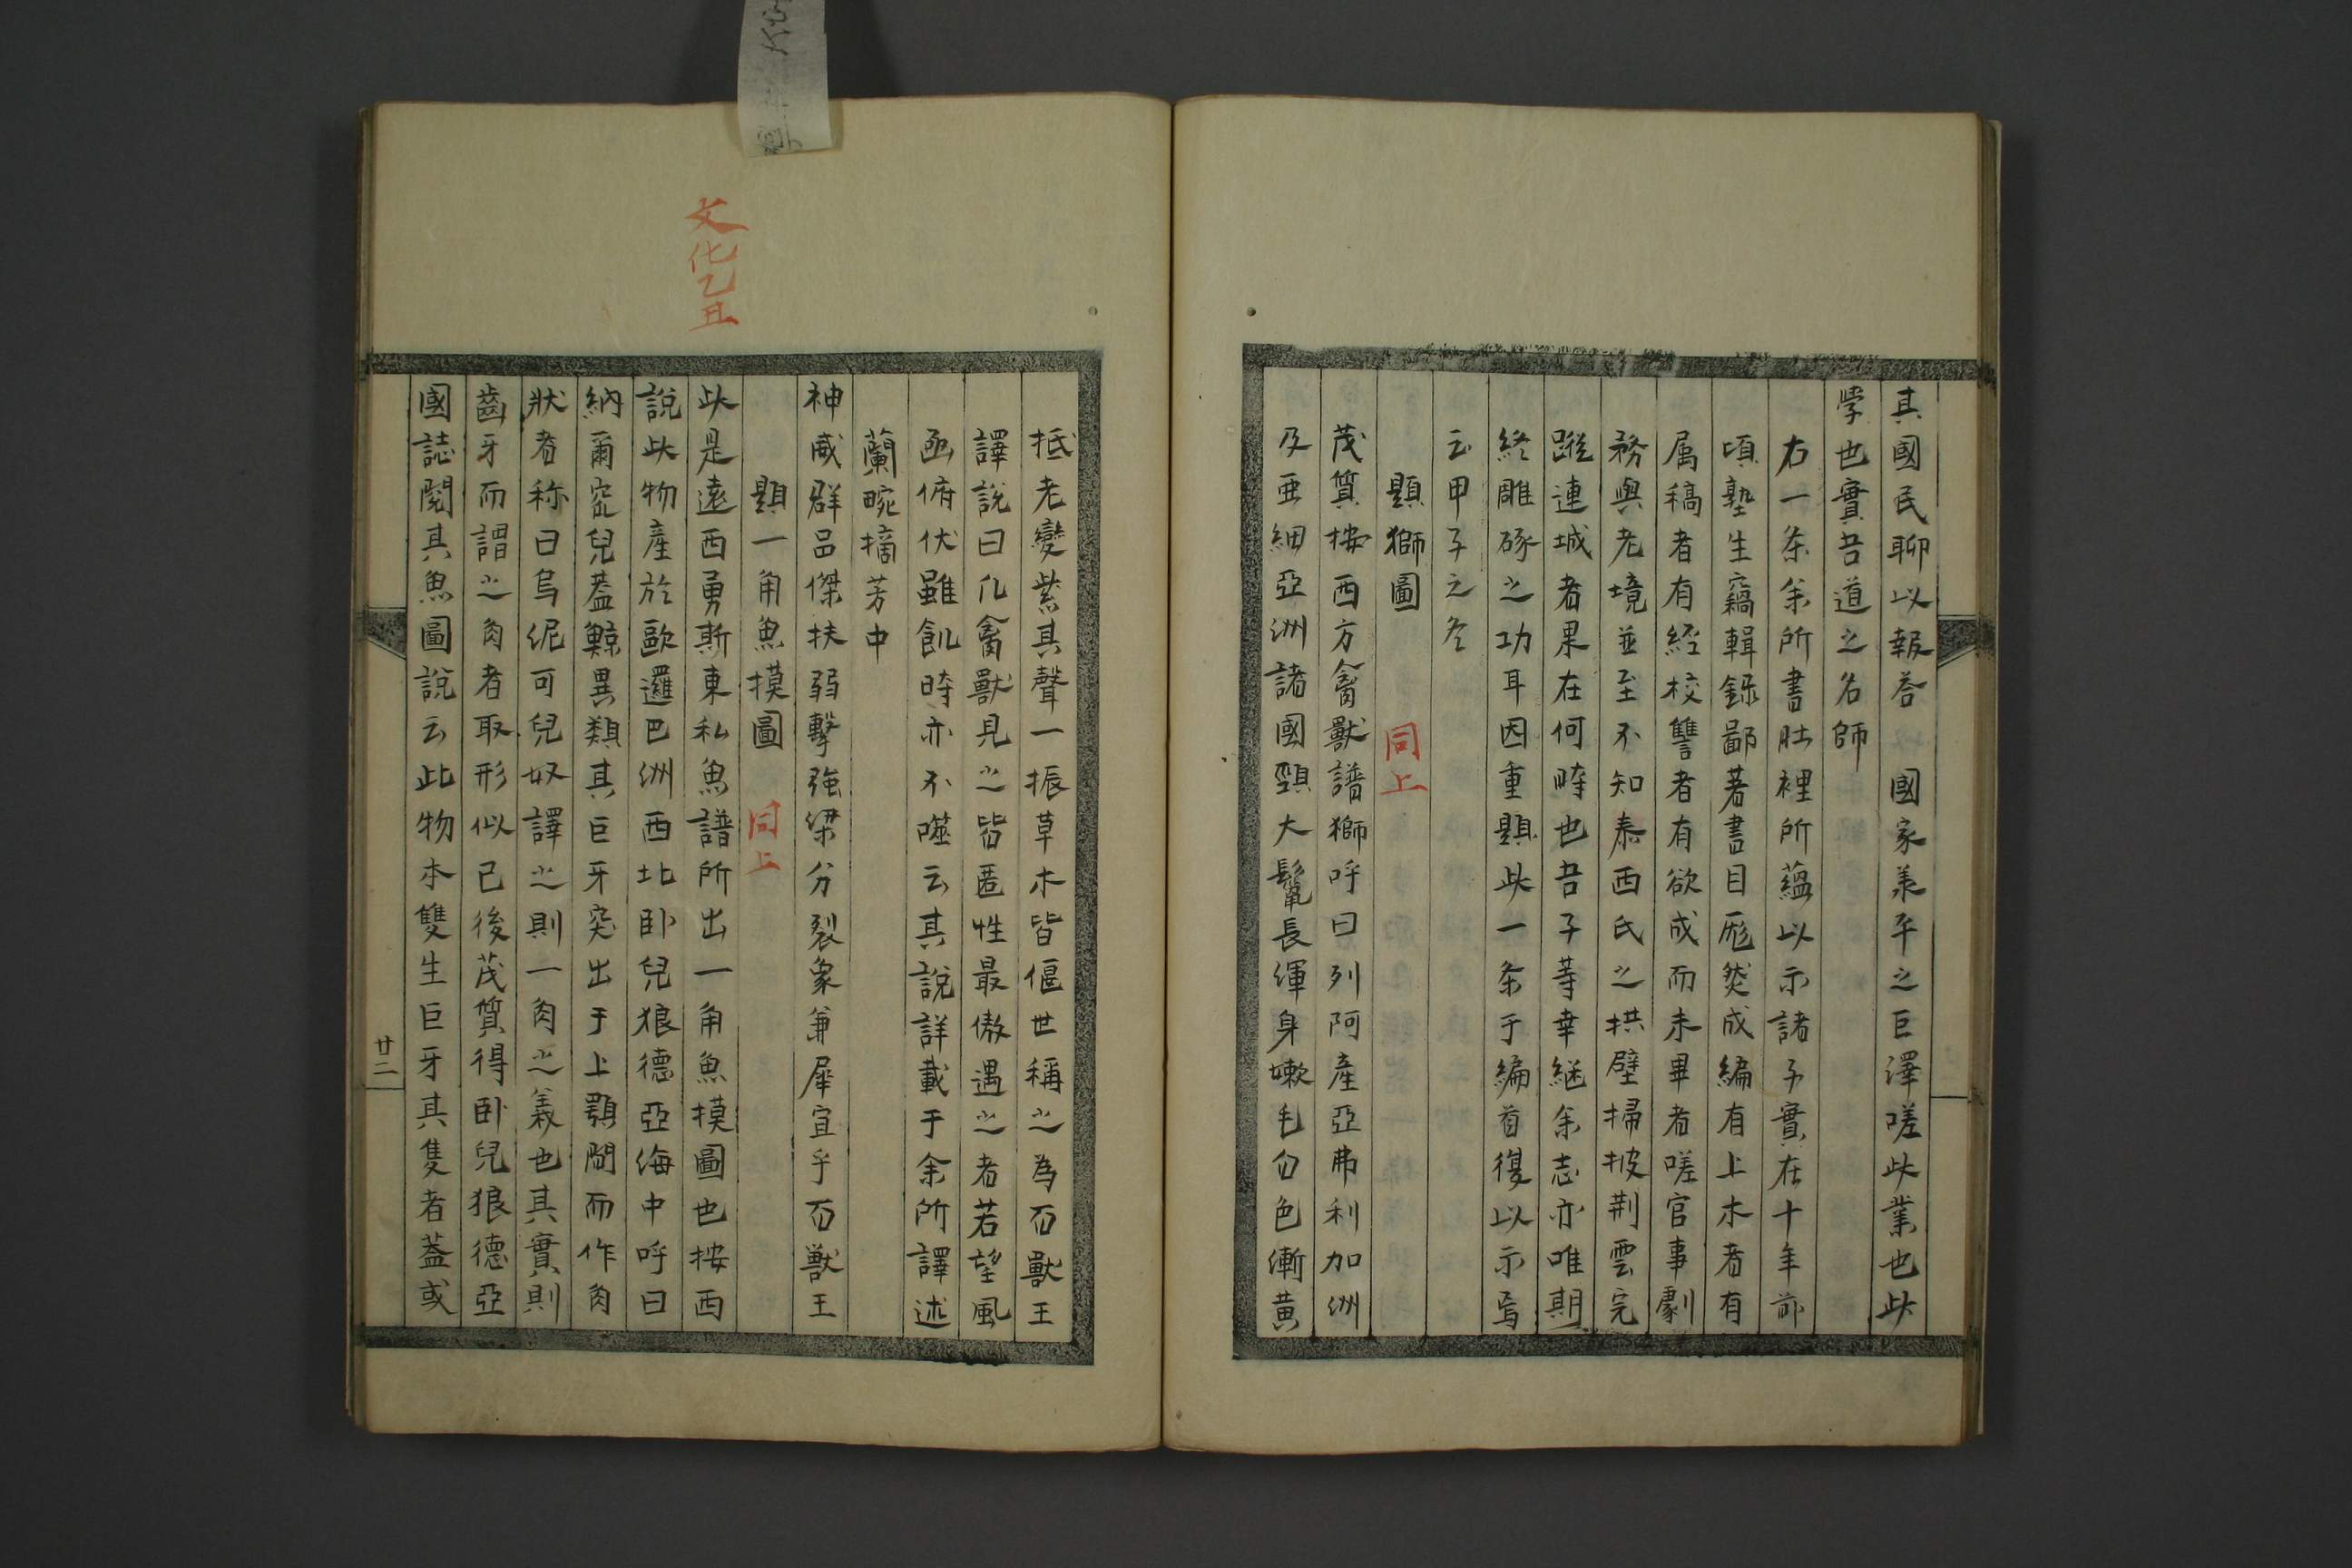 其國民聊以報荅　國家羕平之巨澤嗟此業也此
学也實吾道之名師
右一条余所書肚裡所蘊以示諸子實在十年前
頃塾生竊輯録鄙著書目彪然成編有上木者有
属稿者有経校讐者有欲成而未畢者嗟官事劇
務與老境並至不知泰西氏之拱壁掃披荆雲完
蹤連城者果在何時也吾子等幸継余志亦唯期
終雕琢之功耳因重題此一条于編首復以示焉
云甲子之冬
題獅圖　同上
茂質按西方禽獣譜獅呼曰列阿產亞弗利加洲
及亜細亞洲諸國頸大鬣長渾身嫩毛白色漸黄
抵老變紫其聲一振草木皆偃世稱之為百獣王
譯説曰凢禽獣見之皆匿性最傲遇之者若望風
函俯伏雖飢時亦不噬云其説詳載于余所譯述
蘭畹摘芳中
神威群品傑扶弱擊強梁分裂象兼犀宜乎百獣王
題一角魚摸圖　同上
文化乙丑
此是遠西勇斯東私魚譜所出一角魚摸圖也按西
説此物產於歐邏巴洲西北卧兒狼德亞海中呼曰
納爾窊兒蓋鯨異類其巨牙突出于上顎間而作角
狀者称曰烏伲可兒奴譯之則一角之義也其實則
齒牙而謂之角者取形似已後茂質得卧兒狼德亞
國誌閲其魚圖説云此物本雙生巨牙其隻者蓋或
廿二